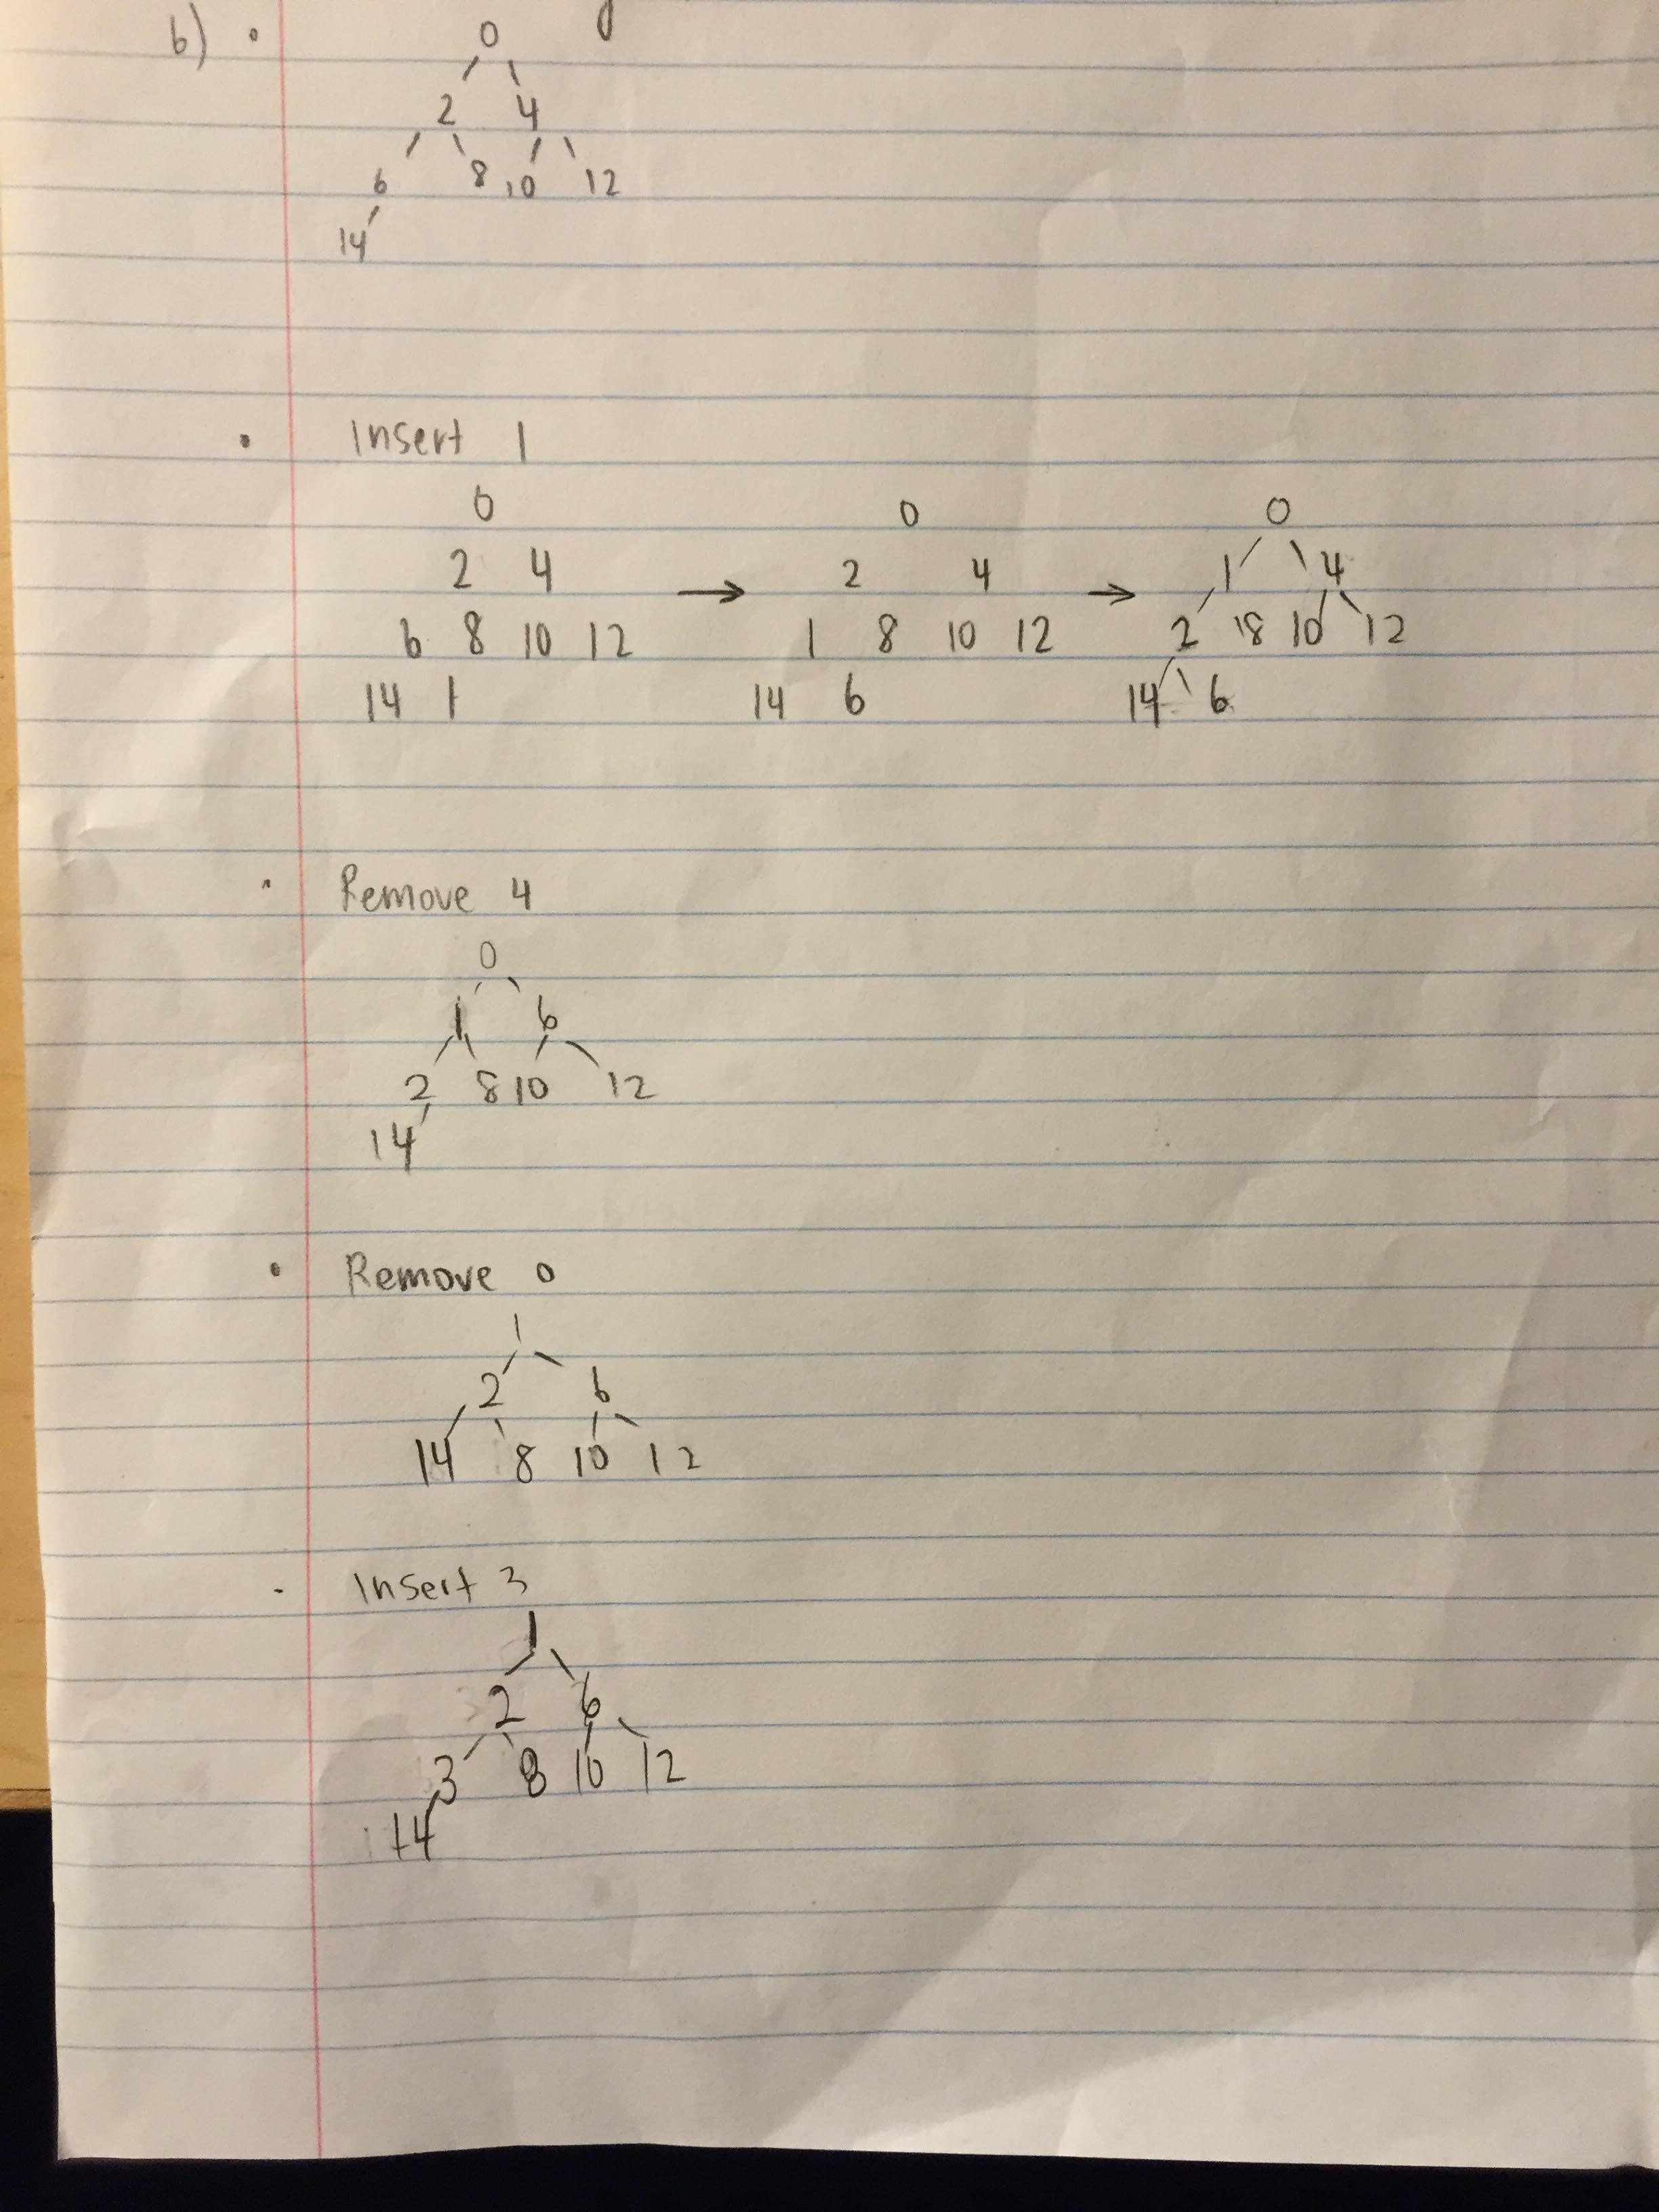 b) • 0
2 4
6 8 10 12
14
• Insert 1
0 0 0
2 4 → 2 4 → 1 4
6 8 10 12 1 8 10 12 2 8 10 12
14 1 14 6 14 6
• Remove 4
0
1 6
2 8 10 12
14
• Remove 0
1
2 6
14 8 10 12
• Insert 3
1
2 6
3 8 10 12
14